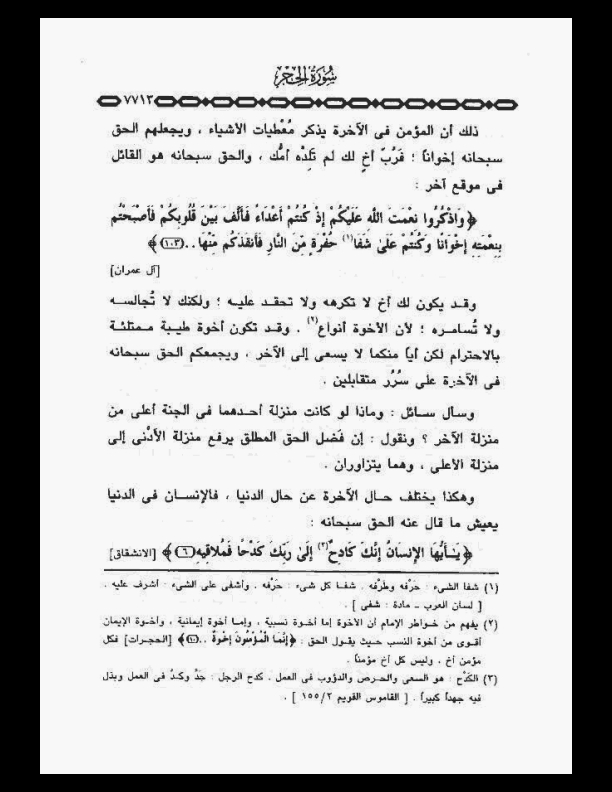 سُورَةُ الحِجْر
٧٧١٣
ذلك أن المؤمن فى الآخرة يذكر مُعْطيات الأشياء ، ويجعلهم الحق
سبحانه إخواناً ؛ فَرُبّ أخٍ لك لم تَلِدْه أمُّك ، والحق سبحانه هو القائل
فى موقع آخر :
﴿ وَاذْكُرُوا نِعْمَتَ اللَّهِ عَلَيْكُمْ إِذْ كُنتُمْ أَعْدَاءً فَأَلَّفَ بَيْنَ قُلُوبِكُمْ فَأَصْبَحْتُم
بِنِعْمَتِهِ إِخْوَانًا وَكُنتُمْ عَلَىٰ شَفَا(١) حُفْرَةٍ مِّنَ النَّارِ فَأَنقَذَكُم مِّنْهَا..(١٠٣) ﴾
[آل عمران]
وقـد يكون لك أخ لا تكرهه ولا تحقـد عليـه ؛ ولكنك لا تُجالسـه
ولا تُسامـره ؛ لأن الأخوة أنواع(٢) . وقـد تكون أخوة طيـبة مـمتلئـة
بالاحترام لكن أياً منكما لا يسعى إلى الآخر ، ويجمعكم الحق سبحانه
فى الآخرة على سُرُر متقابلين .
وسـأل سـائل : ومـاذا لو كانت منزلة أحـدهما فى الجنة أعلى من
منزلة الآخر ؟ ونقول : إن فَضل الحق المطلق يرفع منزلة الأَدْنى إلى
منزلة الأعلى ، وهما يتزاوران .
وهكذا يختلف حـال الآخرة عن حال الدنيا ، فالإنسـان فى الدنيا
يعيش ما قال عنه الحق سبحانه :
﴿ يَـٰأَيُّهَا الإِنسَانُ إِنَّكَ كَادِحٌ(٣) إِلَىٰ رَبِّكَ كَدْحًا فَمُلَاقِيهِ(٦) ﴾ [الانشقاق]
(١) شفا الشىء : حَرْفه وطَرْفه . شفـا كل شىء : حَرْفه . وأشفى على الشىء : أشرف عليه .
[ لسان العرب ـ مادة : شفى ] .
(٢) يفهم من خـواطر الإمام أن الأخوة إما أخـوة نسبية ، وإمـا أخوة إيمانية ، وأخـوة الإيمان
أقوى من أخوة النسب حيث يقول الحق : ﴿إِنَّمَا الْمُؤْمِنُونَ إِخْوَةٌ ..(١٠)﴾ [الحجرات] فكل
مؤمن أخ ، وليس كل أخ مؤمناً .
(٣) الكَدْح : هو السعى والحـرص والدؤوب فى العمل . كدح الرجل : جَدَّ وكـدَّ فى العمل وبذل
فيه جهداً كبيراً . [ القاموس القويم ١٥٥/٢ ] .